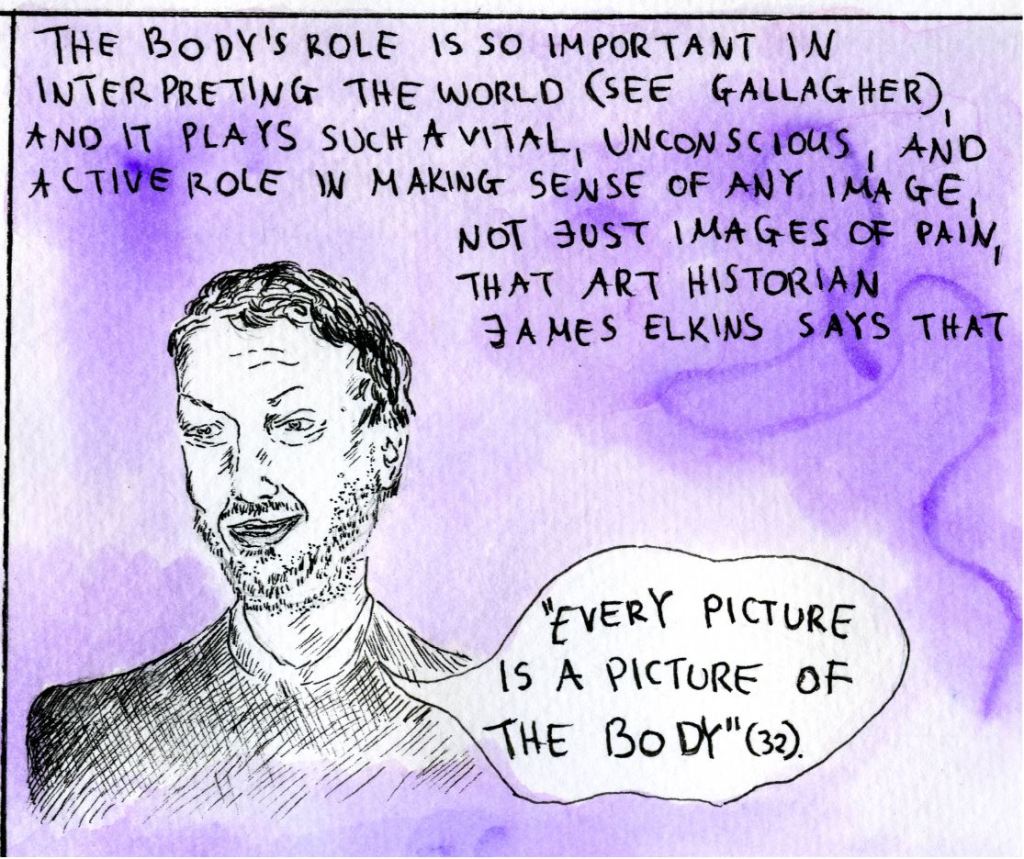 THE BODY'S ROLE IS SO IMPORTANT IN
INTERPRETING THE WORLD (SEE GALLAGHER),
AND IT PLAYS SUCH A VITAL, UNCONSCIOUS, AND
ACTIVE ROLE IN MAKING SENSE OF ANY IMAGE,
NOT JUST IMAGES OF PAIN,
THAT ART HISTORIAN
JAMES ELKINS SAYS THAT
"EVERY PICTURE
IS A PICTURE OF
THE BODY" (32).